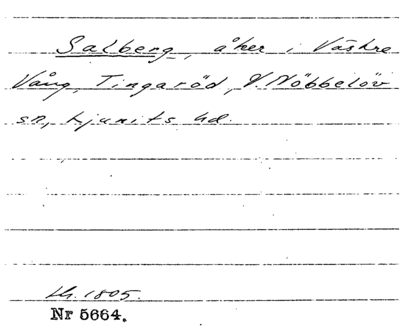 Salberg, åker i Västre
Vång, Tingaröd, V. Nöbbelöv
sn, Ljunits hd.
1805.
Nr 5664.